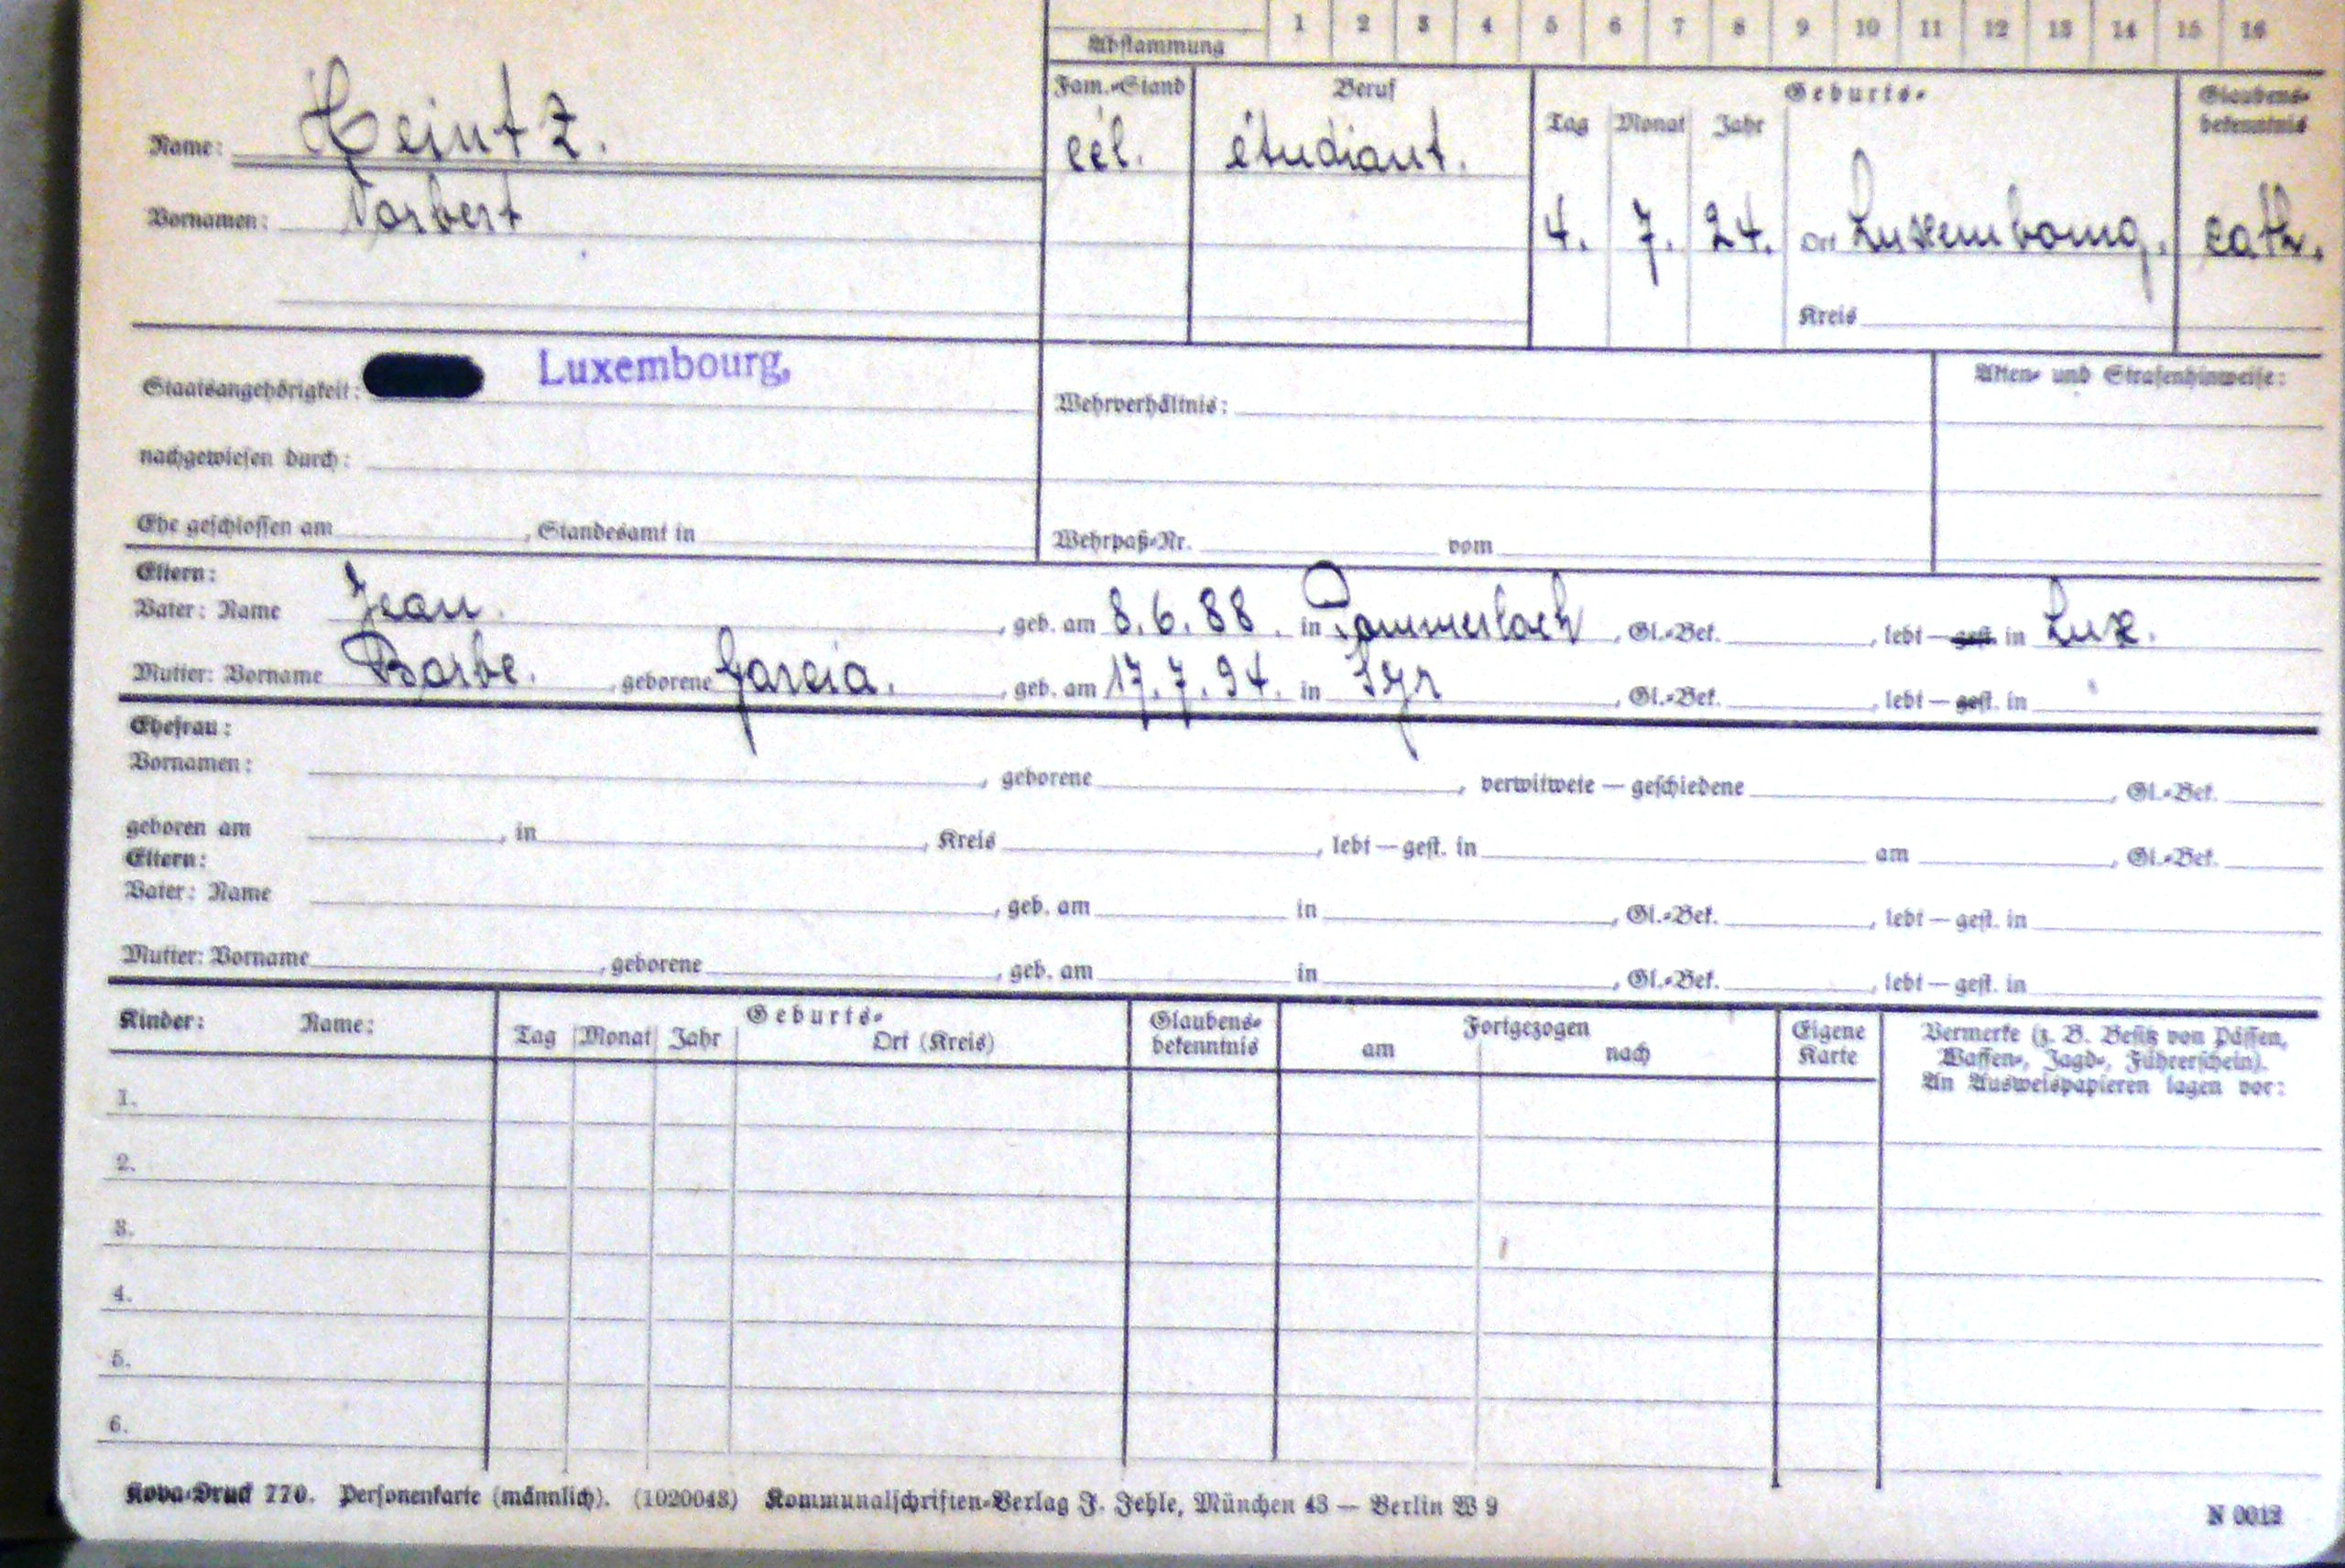 Abstammung 1 2 3 4 5 6 7 8 9 10 11 12 13 14 15 16
Name: Heintz.
Vornamen: Norbert
Fam.-Stand
cél.
Beruf
étudiant.
Geburts-
Tag Monat Jahr
4. 7. 24. Ort Luxembourg.
Kreis
Glaubens-
bekenntnis
cath.
Staatsangehörigkeit: Luxembourg,
nachgewiesen durch:
Ehe geschlossen am , Standesamt in
Wehrverhältnis:
Wehrpaß-Nr. vom
Akten- und Strafenhinweise:
Eltern:
Vater: Name Jean. , geb. am 8.6.88. in Pommerloch , Gl.-Bek. , lebt — gest. in Lux.
Mutter: Vorname Barbe. , geborene Garcia. , geb. am 17.7.94. in Syr , Gl.-Bek. , lebt — gest. in
Ehefrau:
Vornamen: , geborene , verwitwete — geschiedene , Gl.-Bek.
geboren am , in , Kreis , lebt — gest. in am , Gl.-Bek.
Eltern:
Vater: Name , geb. am in , Gl.-Bek. , lebt — gest. in
Mutter: Vorname , geborene , geb. am in , Gl.-Bek. , lebt — gest. in
Kinder: Name:
Geburts-
Tag Monat Jahr Ort (Kreis)
Glaubens-
bekenntnis
Fortgezogen
am nach
Eigene
Karte
Vermerke (z. B. Besitz von Pässen,
Waffen-, Jagd-, Führerschein).
An Ausweispapieren lagen vor:
1.
2.
3.
4.
5.
6.
Kova-Druck 770. Personenkarte (männlich). (1020043) Kommunalschriften-Verlag J. Jehle, München 43 — Berlin W 9
N 0012